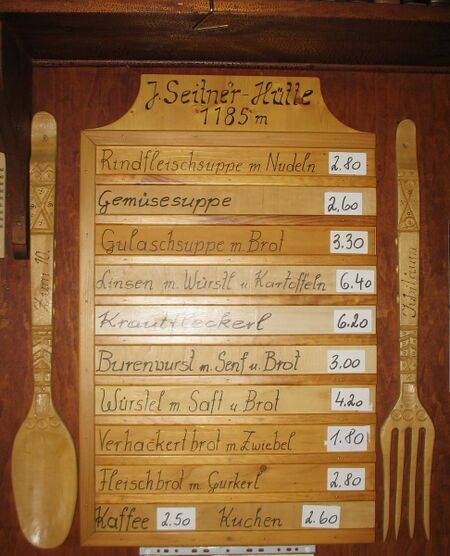 J. Seitner-Hütte
1185 m
Rindfleischsuppe m Nudeln 2.80
Gemüsesuppe 2.60
Gulaschsuppe m. Brot 3.30
Linsen m. Würstl u. Kartoffeln 6.40
Krautfleckerl 6.20
Burenwurst m. Senf u. Brot 3.00
Würstel m Saft u. Brot 4.20
Verhackertbrot m. Zwiebel 1.80
Fleischbrot m Gurkerl 2.80
Kaffee 2.50 Kuchen 2.60
Zum 10.
Jubiläum